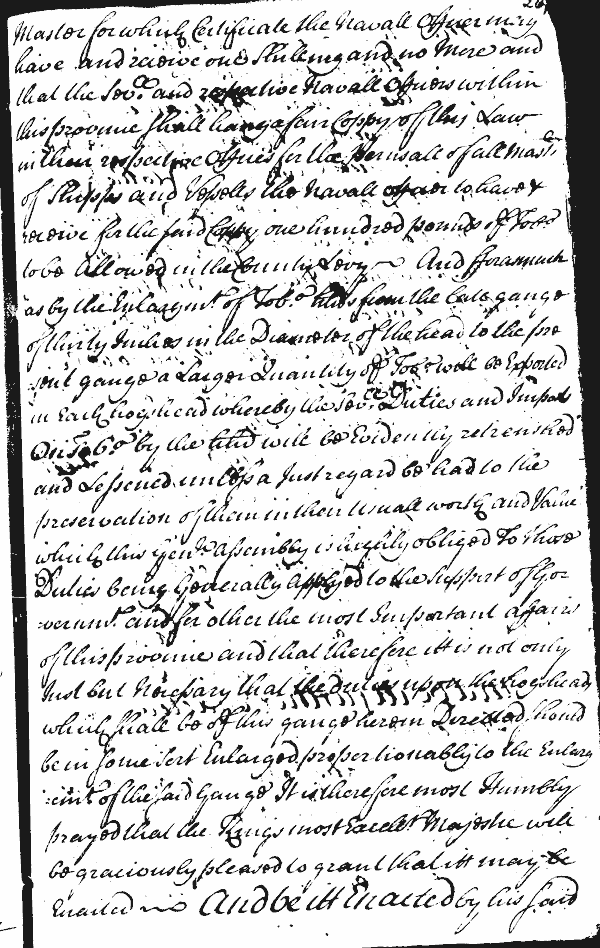 Master for which Certificate the Navall Officer may
have and receive one Shilling and no More and
that the Sev.ll and respective Navall Officers within
this province shall hang a fair Coppy of this Law
in their respective Offices for the perusall of all Mast.rs
of Shipps and Vessells the Navall officer to have &
receive for the said Coppy one hundred pounds of Tobo
to be Allowed in the County Levy ~ And fforasmuch
as by the Enlargmt. of Tob.o hhds from the late gauge
of thirty Inches in the Diameter of the head to the pre
sent gauge a Larger Quantity of Tobo. will be Exported
in Each hogshead whereby the Sev.ll Duties and Imposts
On Tobo by the hhd will be Evidently retrenched
and Lessened unless a Just regard be had to the
preservation of them in their Usuall worth and Value
which this Gen.ll Assembly is highly obliged to those
Duties being Generally Applyed to the Support of Gov
=vernmt. and for other the most Important affairs
of this province and that therefore itt is not only
Just but Necessary that the duties upon the hogsheads
which shall be of this gauge herein Directed should
be in some sort Enlarged proportionably to the Enlarg
=emt. of the said Gauge It is therefore most Humbly
prayed that the Kings most Excellt. Majestie will
be graciously pleased to grant that itt may be
Enacted ~ And be itt Enacted by his said